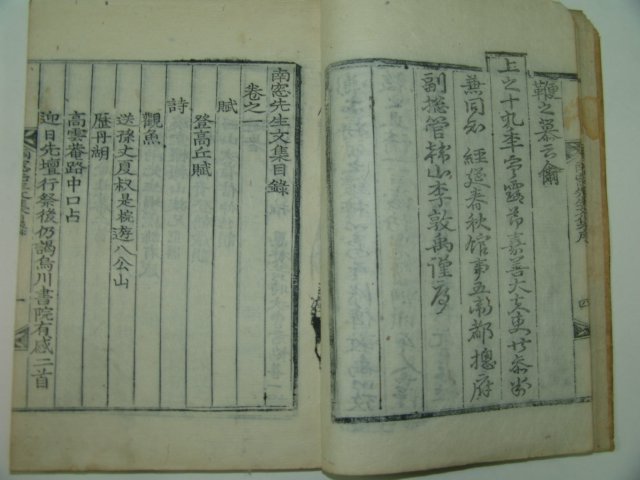 鞭之慕云爾
上之十九年寒露節嘉善大夫吏曹參判
兼同知 經筵春秋館事五衛都摠府
副摠管韓山李敦禹謹序
南窓先生文集目錄
卷之一
賦
登高丘賦
詩
觀魚
送孫丈夏叔是椀遊八公山
歷丹湖
高雲菴路中口占
迎日先壇行祭後仍謁烏川書院有感二首
一
四